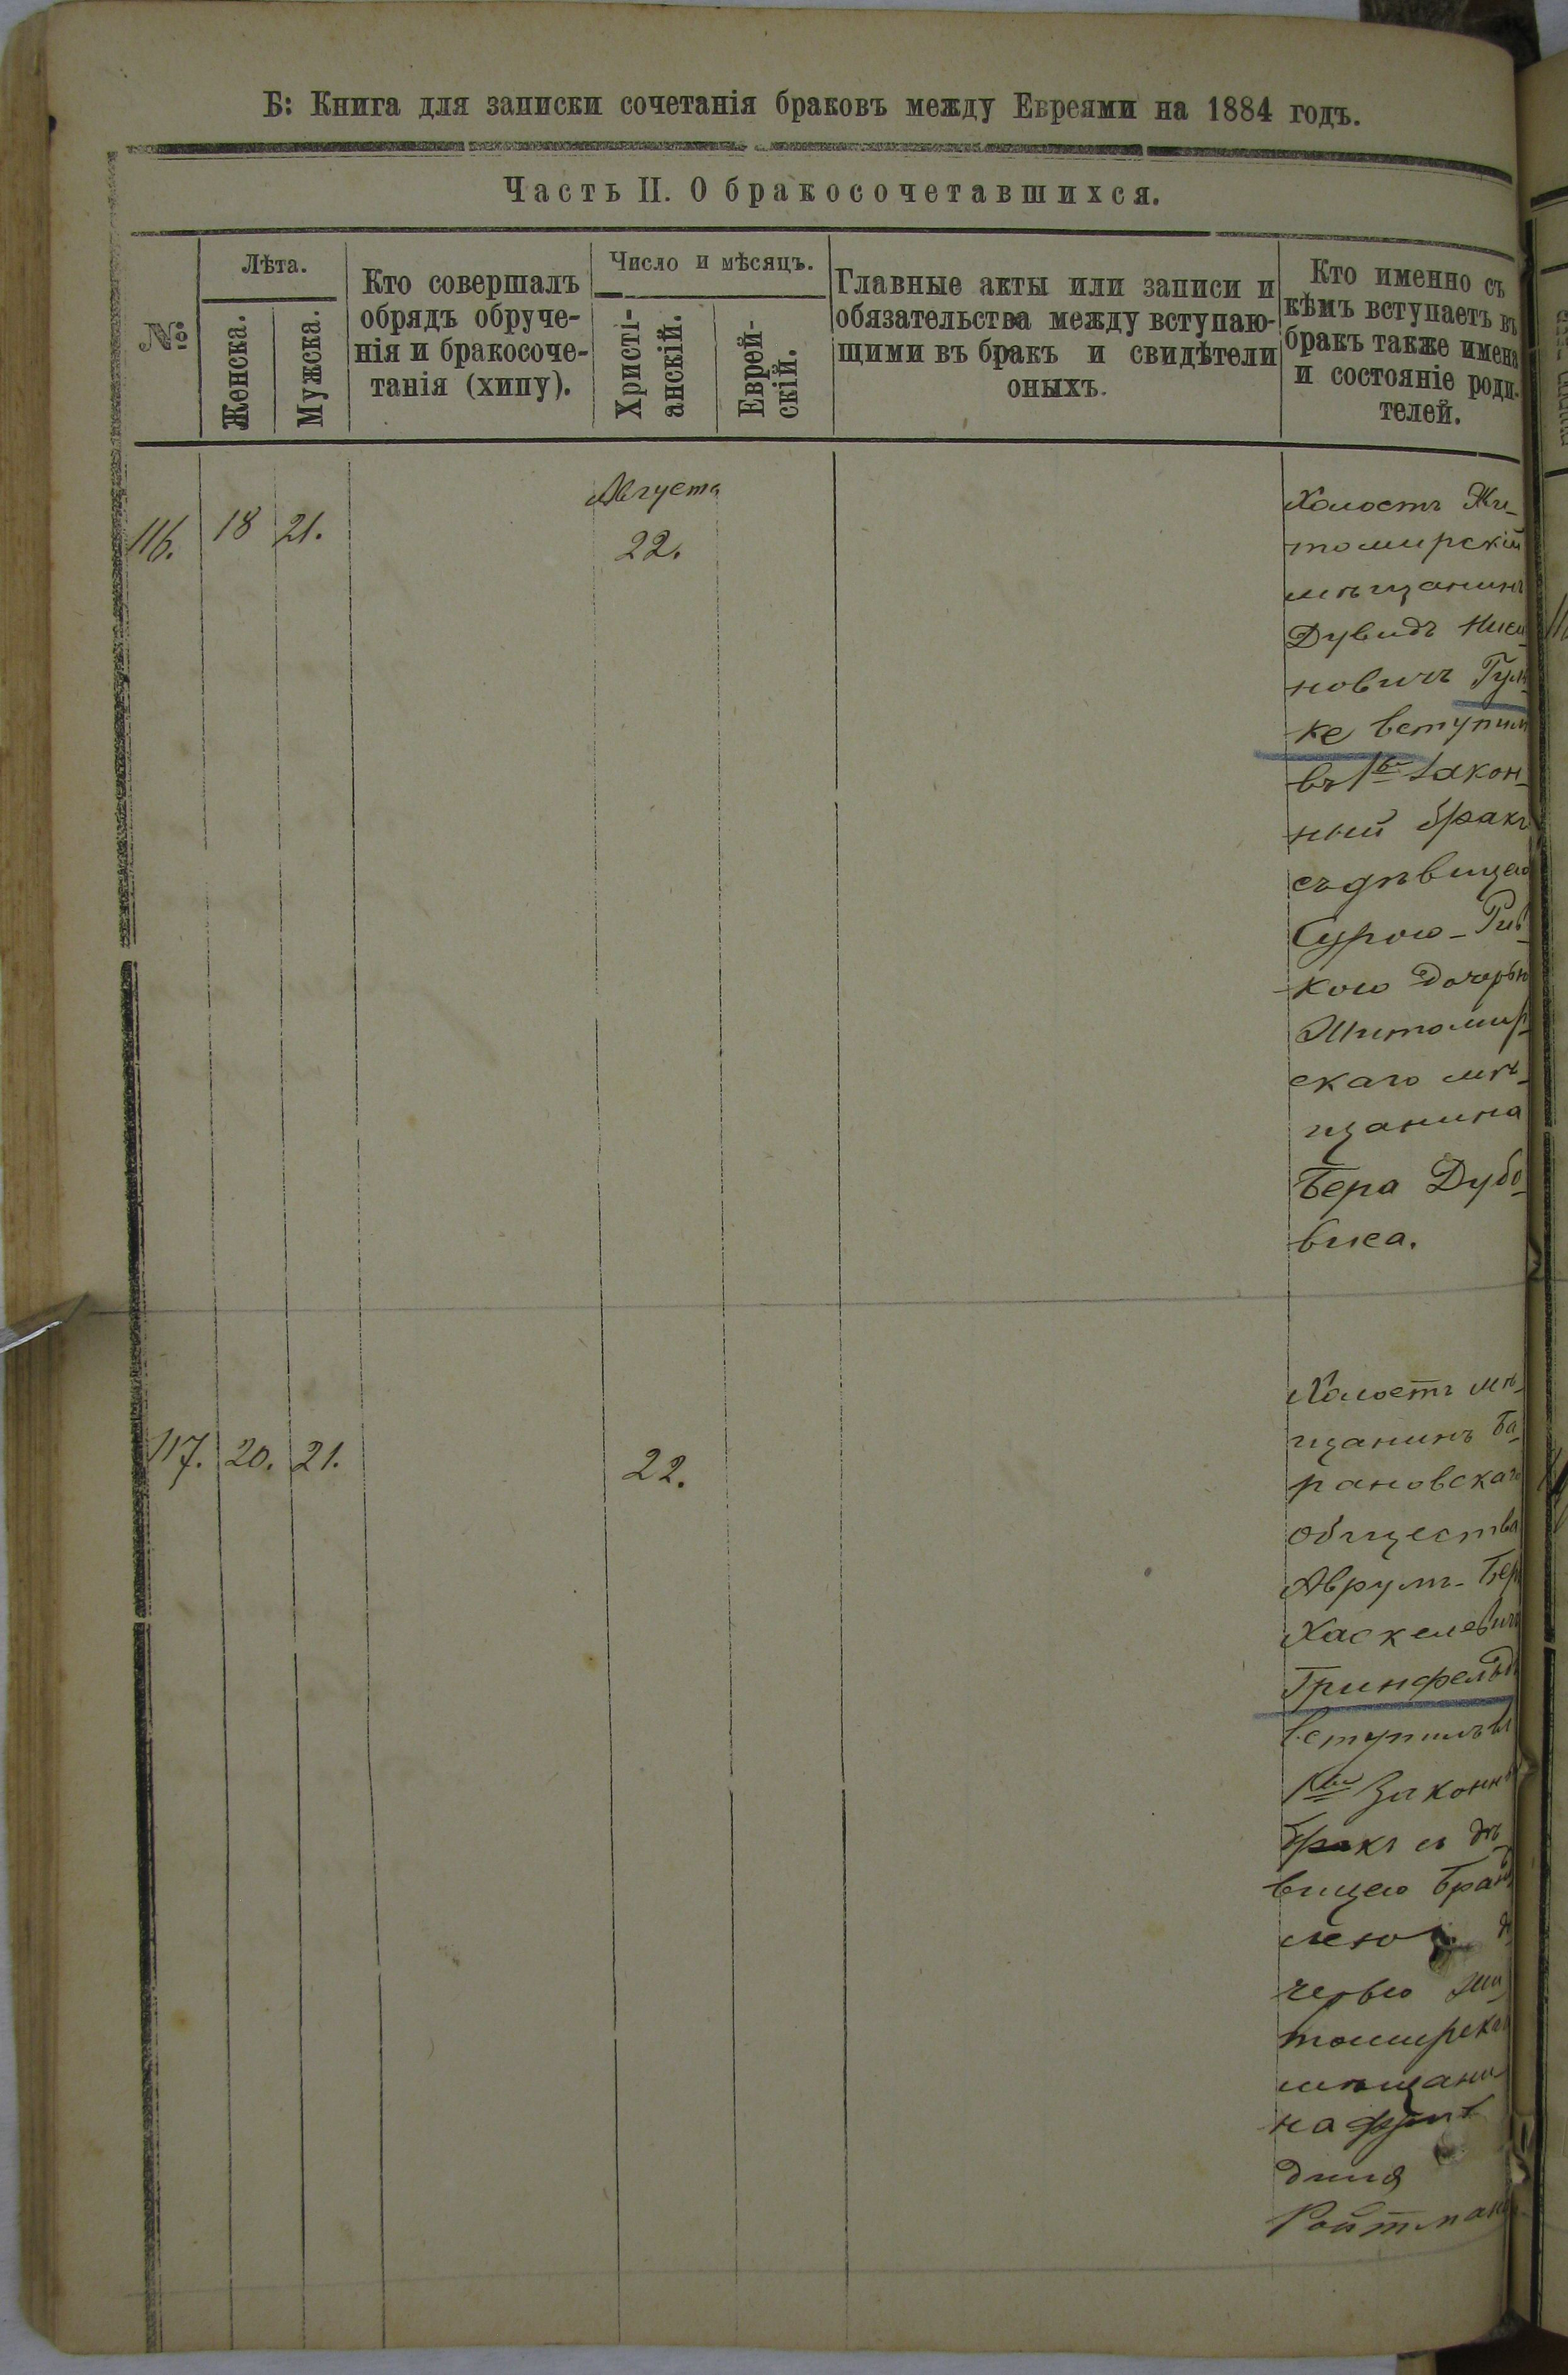 Б: Книга для записки сочетанія браковъ между Евреями на 1884 годъ.
Часть II. О бракосочетавшихся.
№
Лѣта.
Женска.
Мужска.
Кто совершалъ
обрядъ обруче-
нія и бракосоче-
танія (хипу).
Число и мѣсяцъ.
Христі-
анскій.
Еврей-
скій.
Главные акты или записи и
обязательства между вступаю-
щими въ бракъ и свидѣтели
оныхъ.
Кто именно съ
кѣмъ вступаетъ въ
бракъ также имена
и состояніе роди-
телей.
116.
18
21.
Августа
22.
Холостъ Жи-
томирскій
мѣщанинъ
Дувидъ
новичъ Гуль-
ке вступилъ
въ 1вы закон-
ный бракъ
съ дѣвицею
Сурою-Рив-
кою дочерью
Житомир-
скаго мѣ-
щанина
Бера Дубо-
виса.
117.
20.
21.
22.
Холостъ мѣ-
щанинъ Ба-
рановскаго
общества
Аврумъ-Бер
Хаскелевич
Гринфельдъ
вступилъ въ
1вы законн
бракъ съ дѣ-
вицею
чертью Жи-
томирска
мѣщани-
на
Ройтмана